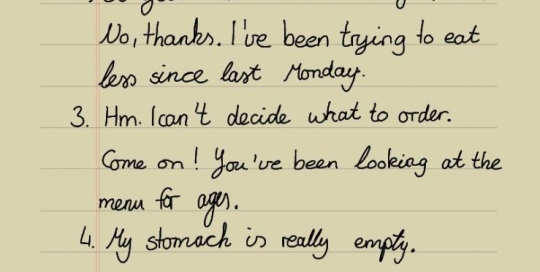 No, thanks. I've been trying to eat
less since last Monday.
3. Hm. I can't decide what to order.
Come on! You've been looking at the
menu for ages.
4. My stomach is really empty.